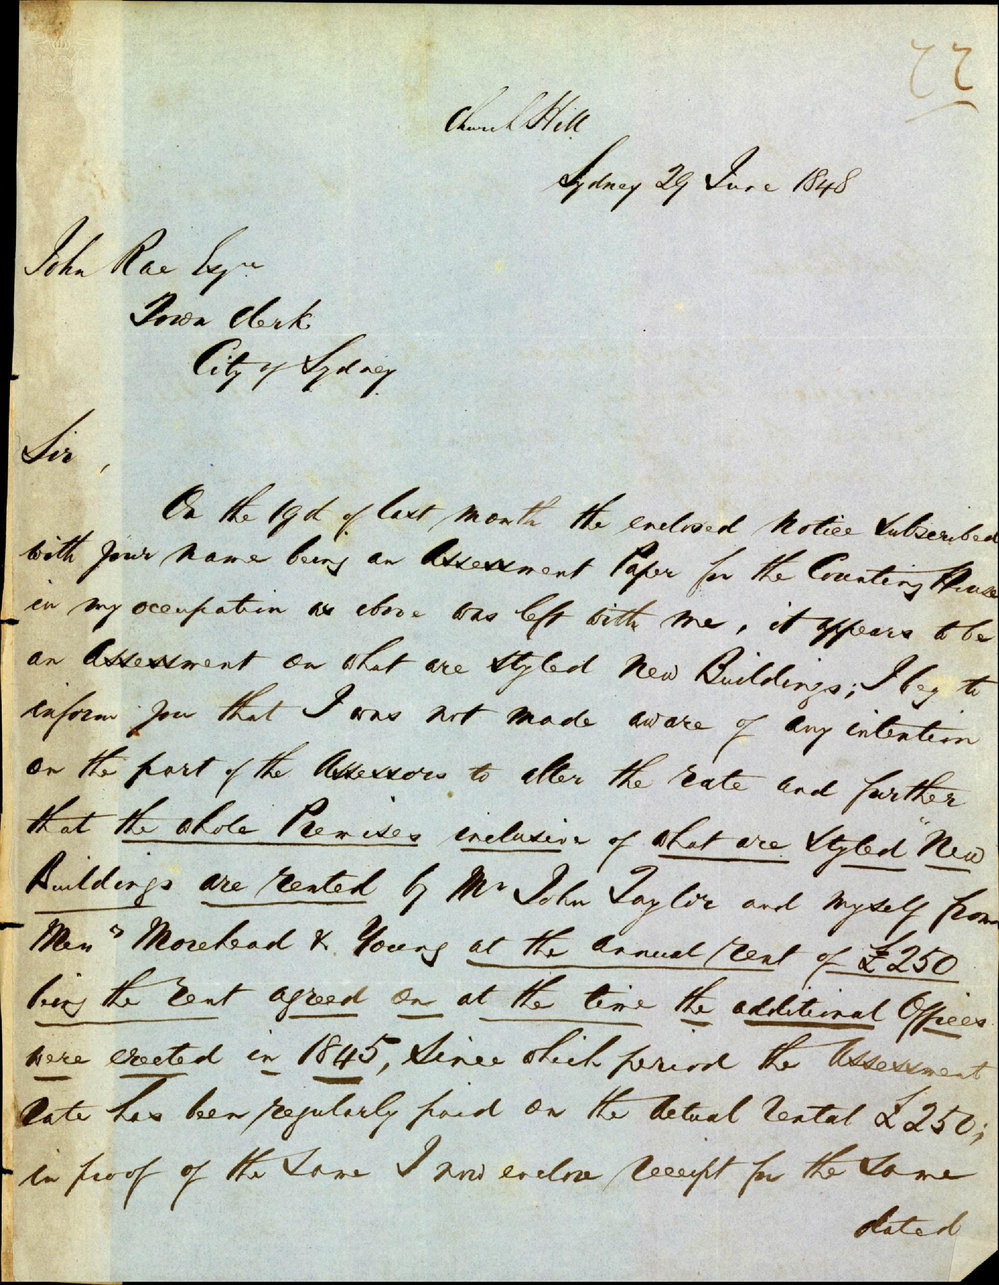 77
Church Hill
Sydney 29 June 1848
John Rae Esqre
Town Clerk
City of Sydney
Sir,
On the 19d of last month the enclosed notice subscribed
with your name being an Assessment Paper for the Counting House
in my occupation as above was left with me, it appears to be
an Assessment on what are styled New Buildings; I beg to
inform you that I was not made aware of any intention
on the part of the Assessors to alter the rate and further
that the whole Premises inclusive of what are styled "New
Buildings are rented by Mr John Taylor and myself from
Messrs Morehead & Young at the annual rent of £250
being the rent agreed on at the time the additional Offices
were erected in 1845, since which period the Assessment
rate has been regularly paid on the actual rental £250;
in proof of the same I now enclose receipt for the same
dated